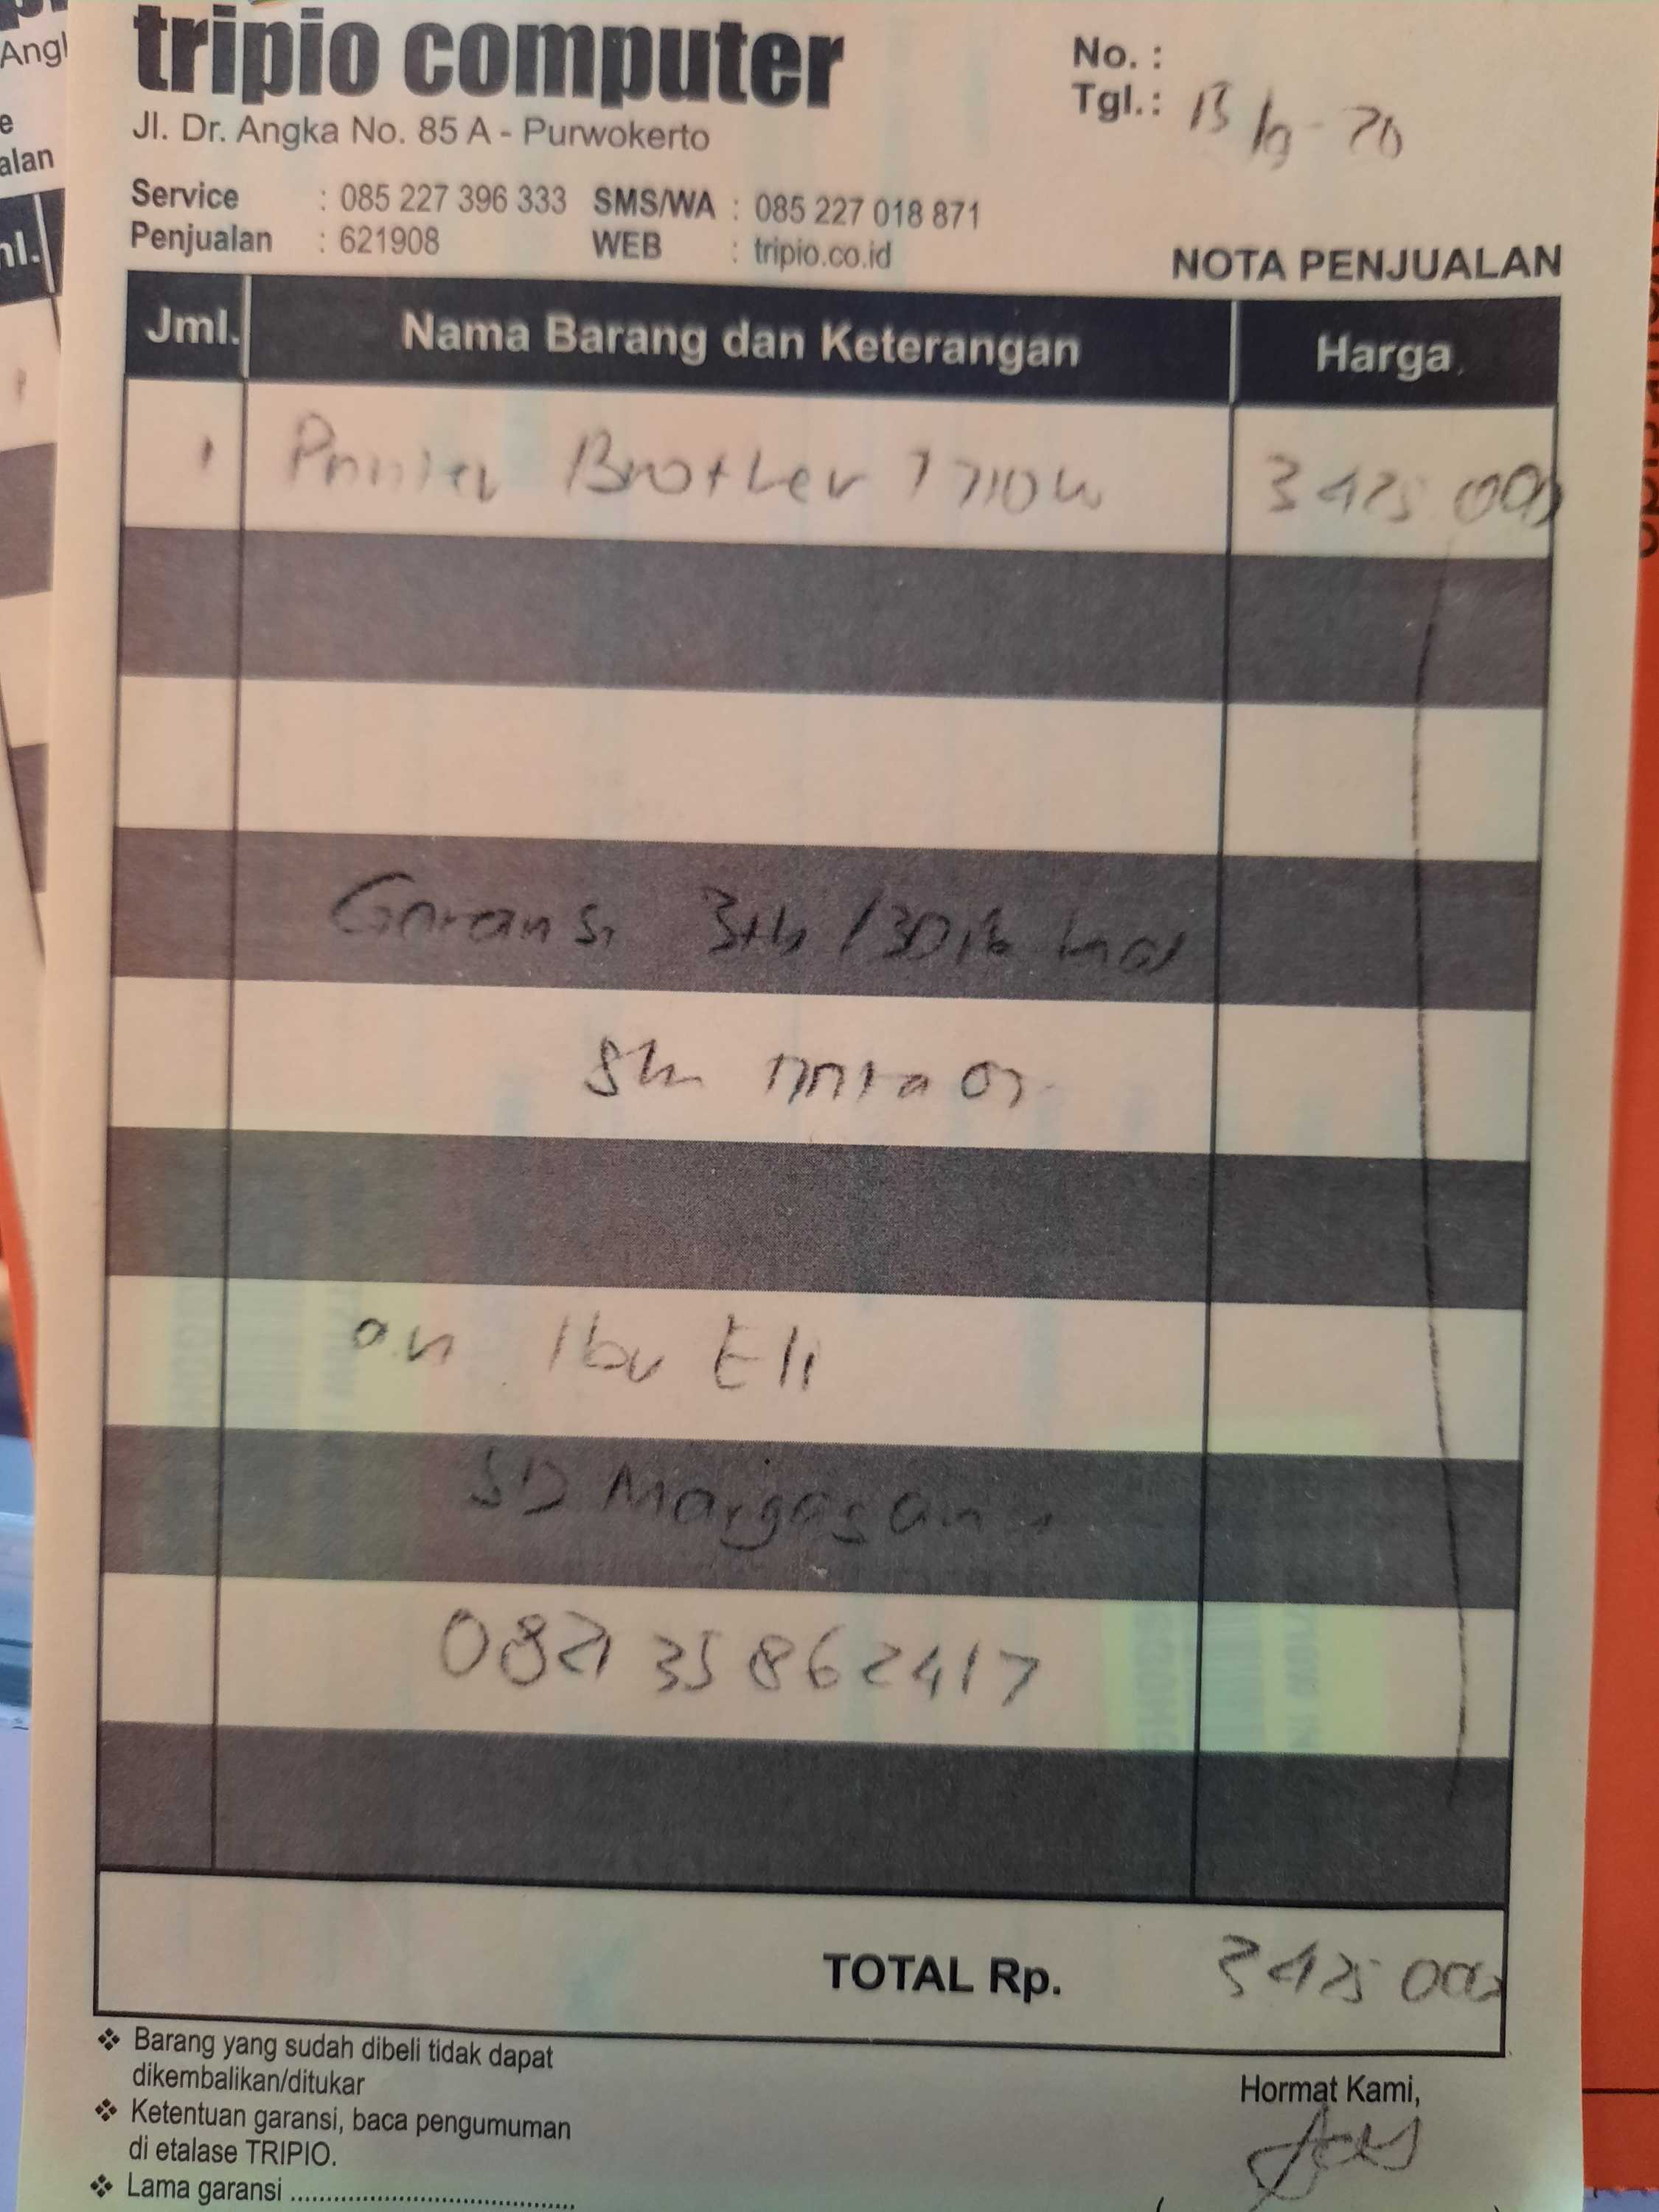 tripio computer
Jl. Dr. Angka No. 85 A - Purwokerto
No. :
Tgl. : 13/9-20
Service : 085 227 396 333 SMS/WA : 085 227 018 871
Penjualan : 621908 WEB : tripio.co.id
NOTA PENJUALAN
Jml. Nama Barang dan Keterangan Harga
1 Printer Brother T710W 3425 000
Garansi 3th /30rb
an Ibu Eli
SD Margasana
0821 35862417
TOTAL Rp. 3425 000
Barang yang sudah dibeli tidak dapat
dikembalikan/ditukar
Ketentuan garansi, baca pengumuman
di etalase TRIPIO.
Lama garansi ..........................................
Hormat Kami,